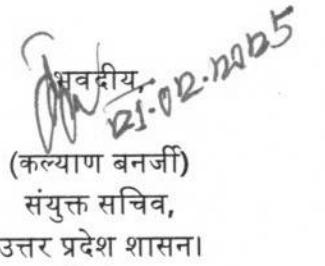 भवदीय,
21.02.2025
(कल्याण बनर्जी)
संयुक्त सचिव,
उत्तर प्रदेश शासन।